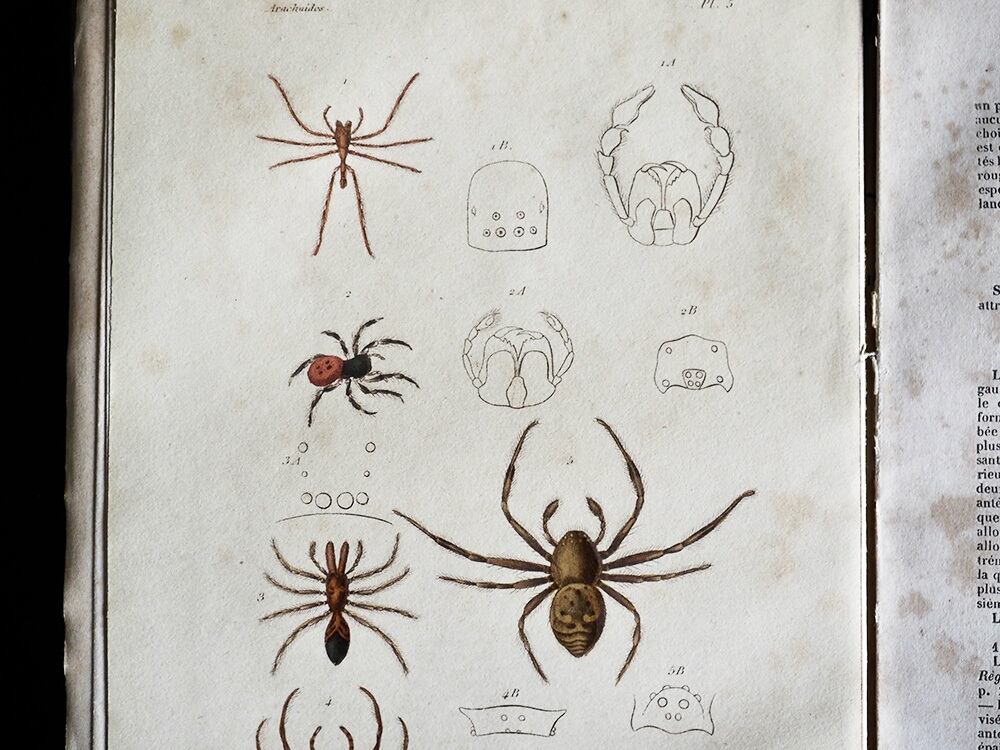 Arachnides.
Pl. 5
1
1 A
1 B.
2
2 A
2 B
3 A
5
3
4
4 B
5 B
un p
aucu
choi
est
tés l
roug
espe
lanc
S
attr
L
gau
le
form
bée
plus
sant
rieu
deux
anté
que
allo
allo
trém
la q
plus
sièm
L
1
L
Règ
p.
— I
visé
ante
épi